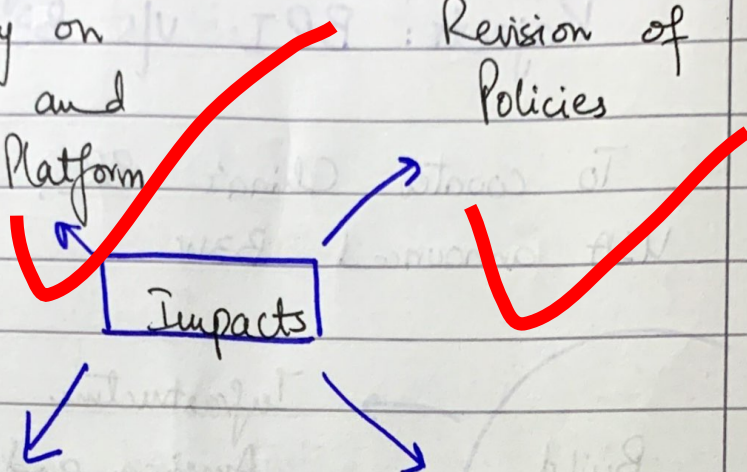 y on
and
Platform
Revision of
Policies
Impacts